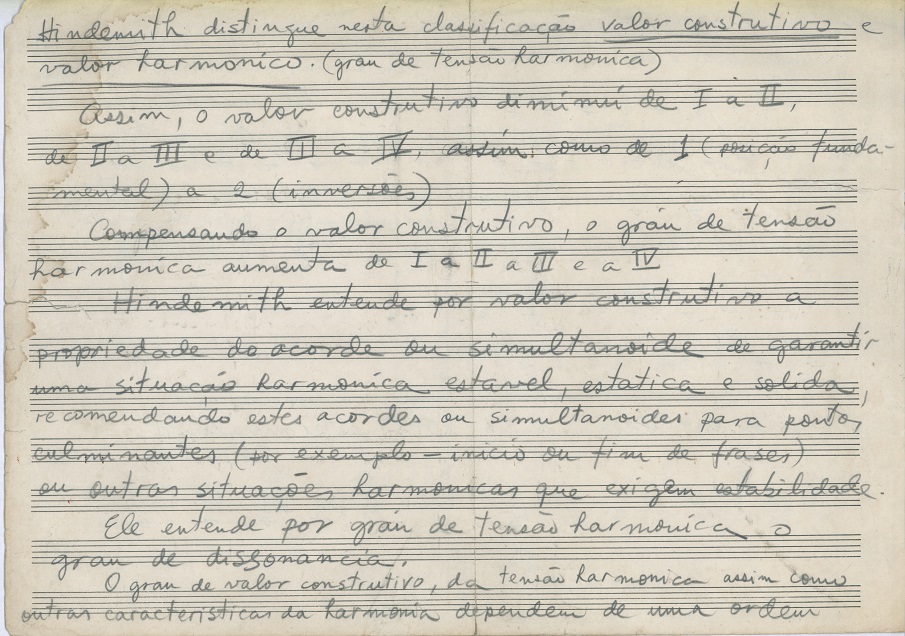 Hindemith distingue nesta classificação valor construtivo e
valor harmonico. (grau de tensão harmonica)
Assim, o valor construtivo diminuí de I a II,
de II a III e de III a IV, assim como de 1 (posição funda-
mental) a 2 (inversões)
Compensando o valor construtivo, o gráu de tensão
harmonica aumenta de I a II a III e a IV
Hindemith entende por valor construtivo a
propriedade do acorde ou simultanoide de garantir
uma situação harmonica estavel, estatica e solida,
recomendando estes acordes ou simultanoides para pontos
culminantes (por exemplo - inicio ou fim de frases)
ou outras situações harmonicas que exigem estabilidade.
Ele entende por gráu de tensão harmonica o
grau de dissonancia.
O grau de valor construtivo, da tensão harmonica assim como
outras caracteristicas da harmonia dependem de uma ordem